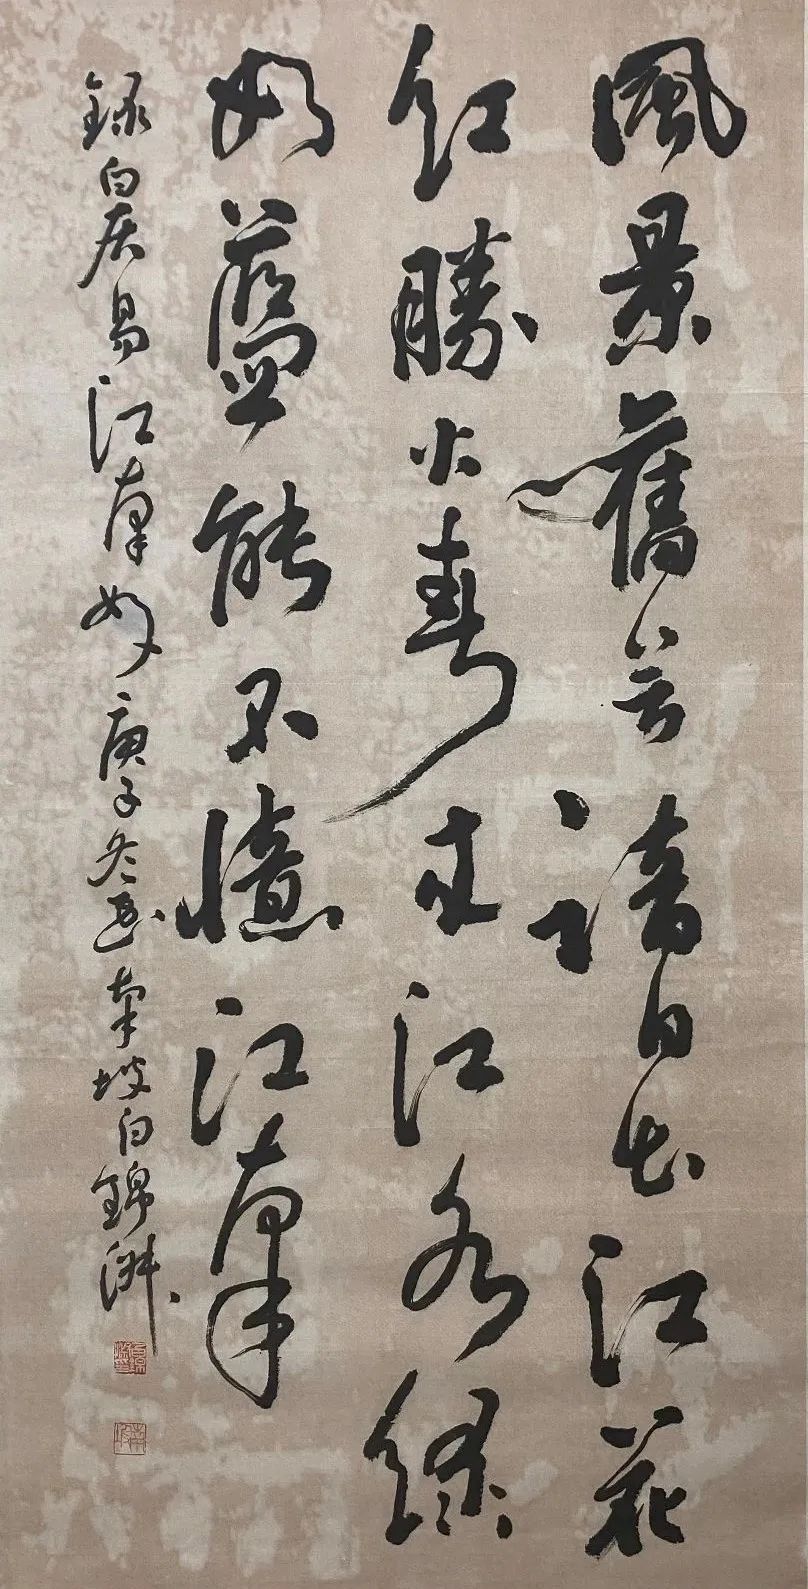 風景舊曽諳日出江花
紅勝火春来江水緑
如藍能不憶江南
録白居易江南好庚子冬書南坡白錦